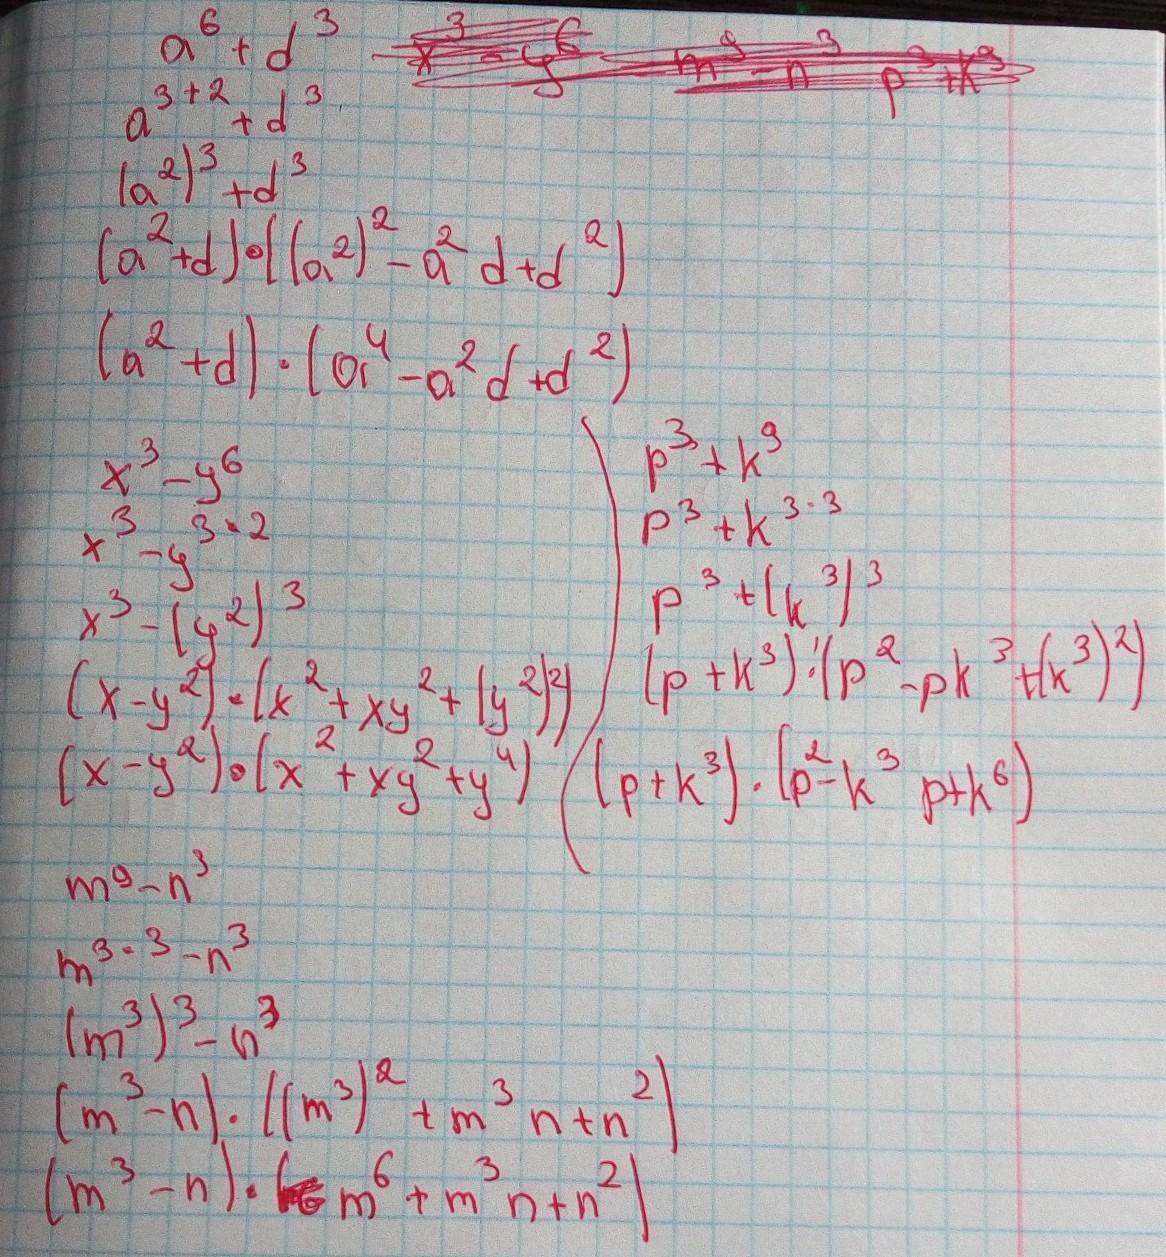 a⁶ + d³ x³ - y⁶ m⁹ - n³ p³ + k⁹
a³⁺² + d³
(a²)³ + d³
(a² + d) · ((a²)² - a²d + d²)
(a² + d) · (a⁴ - a²d + d²)
x³ - y⁶
x³ - y³·²
x³ - (y²)³
(x - y²) · (x² + xy² + (y²)²)
(x - y²) · (x² + xy² + y⁴)
p³ + k⁹
p³ + k³·³
p³ + (k³)³
(p + k³) · (p² - pk³ + (k³)²)
(p + k³) · (p² - k³p + k⁶)
m⁹ - n³
m³·³ - n³
(m³)³ - n³
(m³ - n) · ((m³)² + m³n + n²)
(m³ - n) · (m⁶ + m³n + n²)